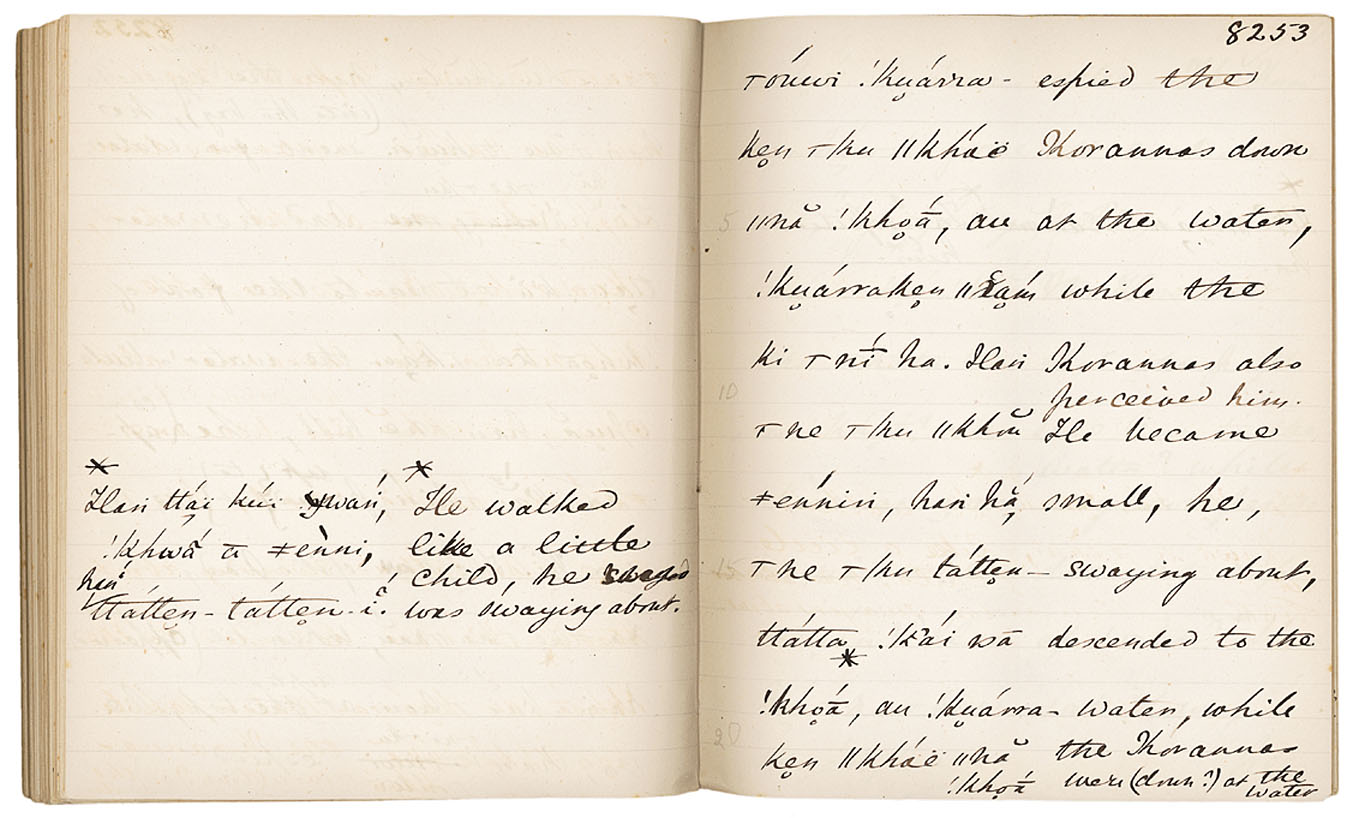 Han ttái kúï ǃgwań, He walked
ǃkhwã́ ā ≠enni, like a little
hań child, he swayed
ttátten-tátten-ĩ́. was swaying about.
8253
ꞱóuwiǃKu̥árra- espied the
ke̥n Ʇku ǁkháë Korannas down
5 ǁnă ǃkho̥á̄, au at the water,
ǃKu̥árrake̥n ǁχḁḿ while the
ki Ʇní ha. Han Korannas also
10 perceived him.
Ʇne Ʇku ǁkhoă He became
≠enniń, han hḁ̆, small, he,
15 Ʇne Ʇku tátte̥n- swaying about,
ttátta, ǃkái sā descended to the
*
ǃkho̥á̄, au ǃKu̥árra- water, while
20 ke̥n ǁkháë ǁnă the Korannas
ǃkho̥á̄ were (down?) at the
water